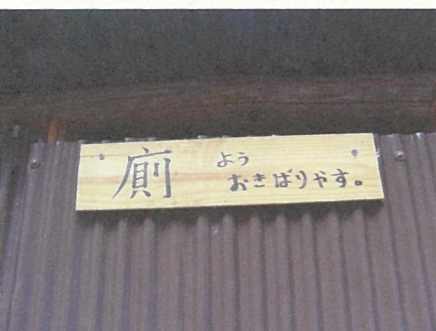 廁
よう
おきばりやす。